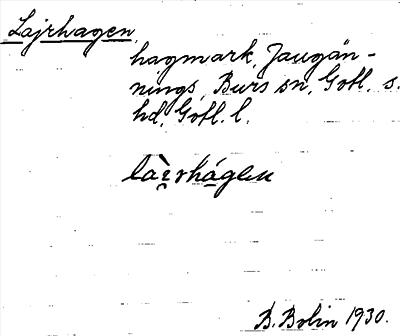 Lajrhagen,
hagmark, Jaugän-
nings, Burs sn, Gotl. s.
hd, Gotl. l.
B. Bolin 1930.